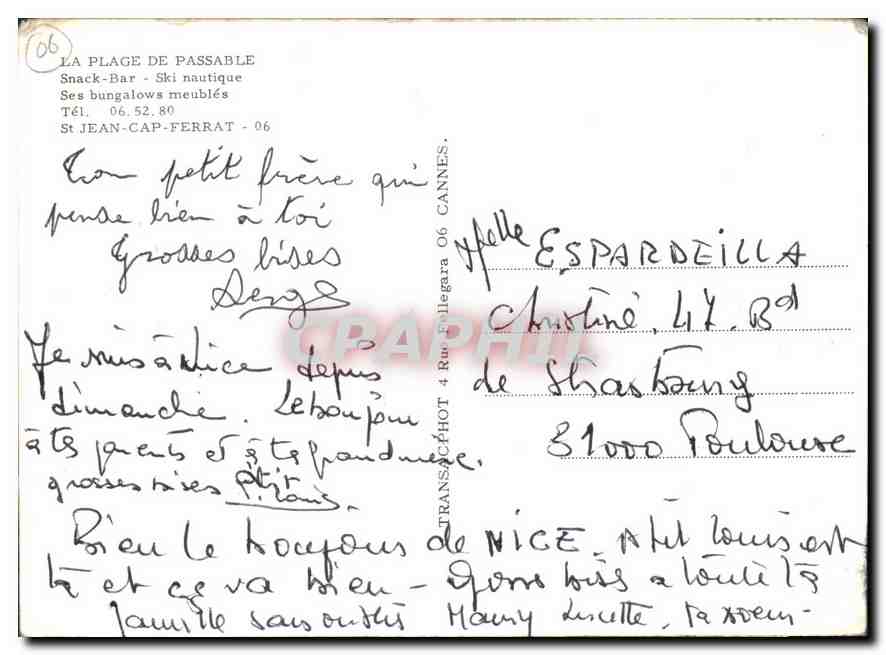 06
LA PLAGE DE PASSABLE
Snack-Bar - Ski nautique
Ses bungalows meublés
Tél. 06.52.80
St JEAN-CAP-FERRAT - 06
Ton petit frère qui
pense bien à toi
Grosses bises
Serge
Je suis à Nice depuis
dimanche. Le bonjour
à tes parents et à ta grandmère.
grosses bises P'tit Louis.
TRANSACPHOT 4 Rue Fellegara 06 CANNES.
Melle ESPARDEILLA
Christine. 47. Bd
de Strasbourg
31000 Toulouse
Bien le bonjour de NICE. P'tit Louis est
là et ça va bien - Gros bises à toute ta
famille sans oublier Mamy Lucette. Ta soeur-
CPAPHIL